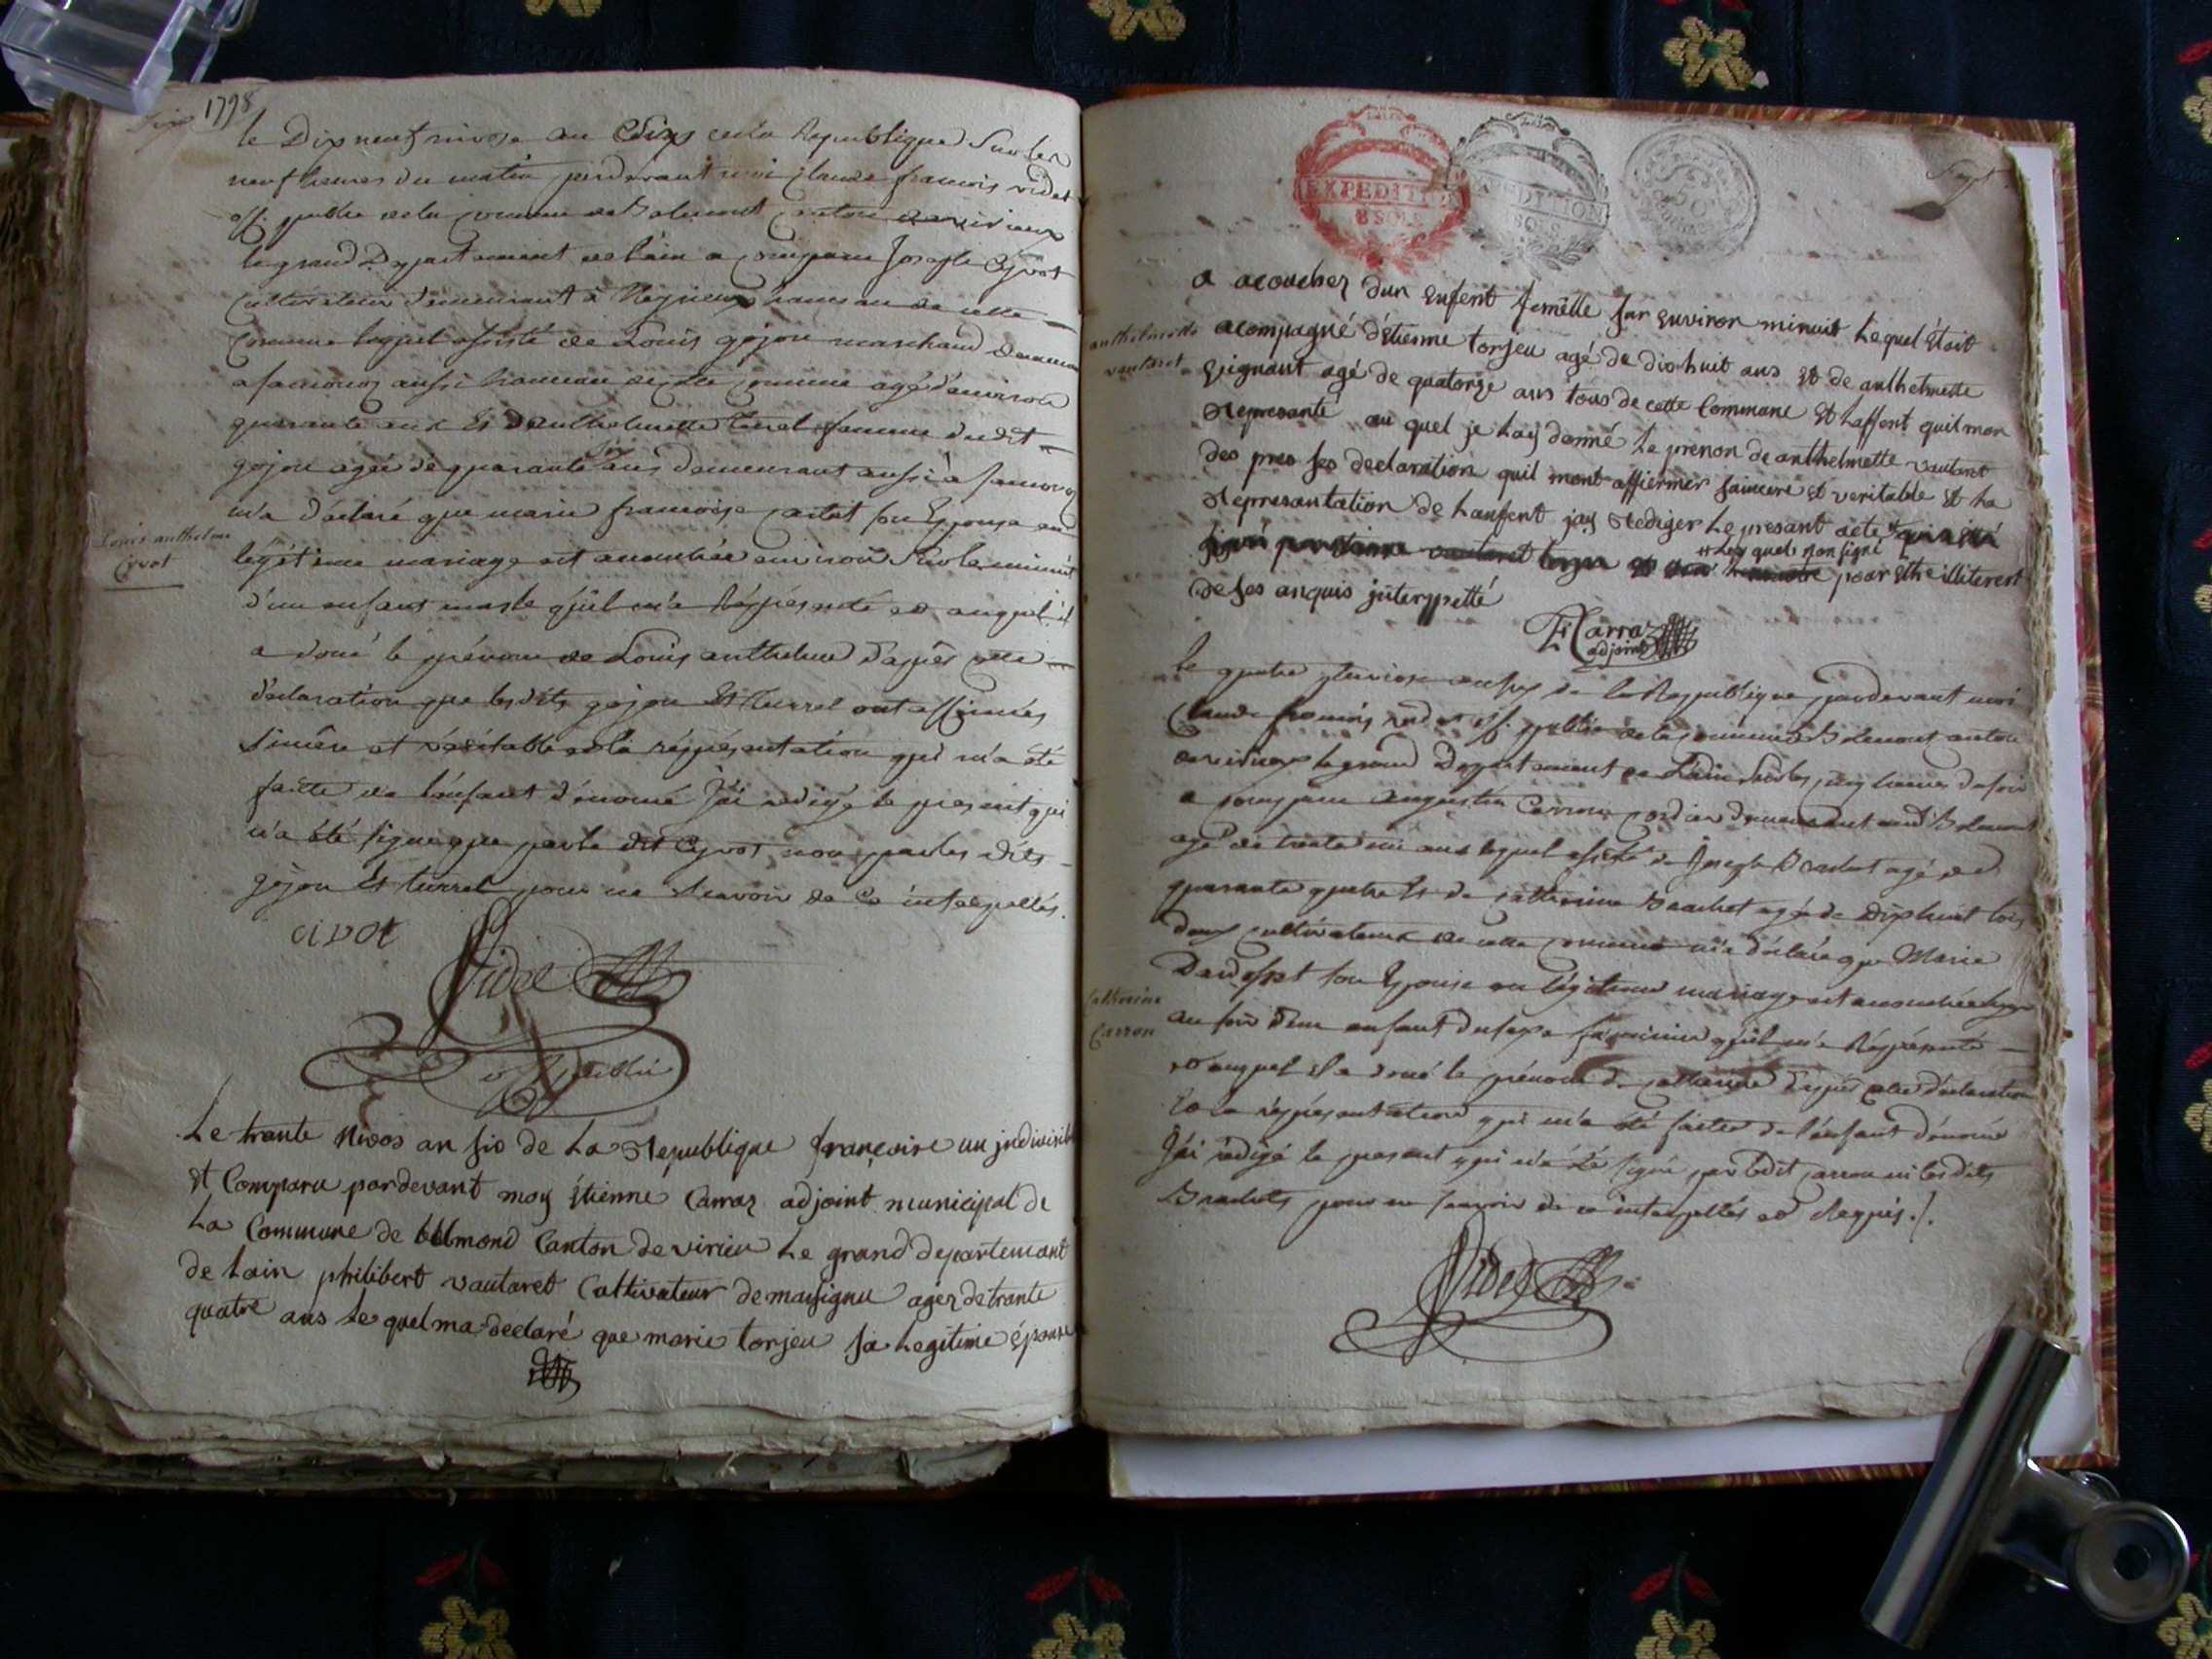 1798
le Dix neuf nivose an Six de la Republique Sur les
neuf heures du matin pardevant moi Claude françois videt
off. public de la commune de Belmont Canton de virieux
le grand Departement de lain a comparu Joseph Cyvot
cultivateur demeurant à hameau de cette
Commune lequel assisté de Louis gojon marchand
a aussi hameau de cette commune agé d'environ
quarante ans Et D'anthelmette turrel femme dudit
gojon agée de quarante six ans demeurant aussi a
m'a déclaré que marie françoise son Epouse en
Louis anthelme
Cyvot
legitime mariage est accouchée environ Sur le minuit
d'un enfant masle qu'il m'a Réprésenté et auquel il
a doné le prénom de Louis anthelme d'après cette
déclaration que lesdits gojon Et turrel ont affirmés
sincère et véritable et la réprésentation qui m'a été
faitte de l'enfant dénomé J'ai redigé le present qui
n'a été signé que par le dit Cyvot non par les dits
gojon Et turrel pour ne Scavoir de Ce interpellés.
civot
Videt
off public
Le trante Nivos an six de La Republique françoise un jndivisib
Et Comparu pardevant moy Étienne Carraz adjoint municipal de
La Commune de belmond Canton de virieu Le grand departemant
de Lain philibert vautaret Cultivateur de massignu agez de trante
quatre ans Le quel ma declaré que marie torjeu sa Legitime épouse
EXPEDITION
8 SOLS
EXPEDITION
SOLS
Sept
a acoucher dun Enfent femelle sur Environ minuit Lequel Étoit
anthelmette
vautaret
acompagné d'étienne torjeu agé de dixhuit ans Et de anthelmette
Guignant agé de quatorze ans tous de cette Commune Et Laffent quil mon
Represanté au quel je Lay donné Le prenon de anthelmette vautaret
des pres ses declaration quil mont affiermer saincere Et veritable Et La
Represantation de Lanfent jay Rediger Le presant acte
Les quels non signé pour Ethe illiterest
de ses anquis jnterppetté
E Carraz
adjoint
Le quatre pluviose an six de la Republique pardevant moi
Claude françois videt off. public de la commune de Belmont canton
de virieux le grand Departement de L'ain Sur les cinq heures du soir
a comparu augustin Carron demeurant audit Belmont
agé de trente ans lequel assisté de Joseph Brachet agé de
quarante quatre Et de catherine Brachet agée de Dix huit tous
deux cultivateurs de cette commune m'a déclaré que Marie
son Epouse en légitime mariage est accouchée
Catherine
Carron
au soir d'un enfant du sexe féminin qu'il m'a Réprésenté
et auquel il a doné le prénom de catherine d'après cette déclaration
Et la réprésentation qui m'a été faitte de l'enfant dénomé
J'ai rédigé le present qui n'a été signé par ledit carron ni lesdits
Brachets pour ne scavoir de ce interpellés et Requis ./.
Videt